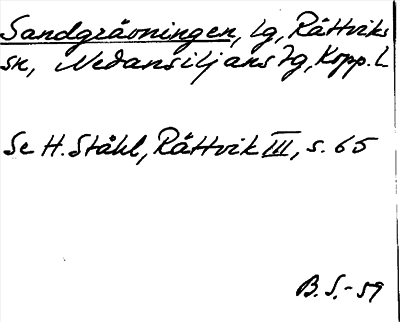 Sandgrävningen, lg, Rättviks
sn, Nedansiljans tg, Kopp. L
Se H. Ståhl, Rättvik III, s. 65
B. S. -59